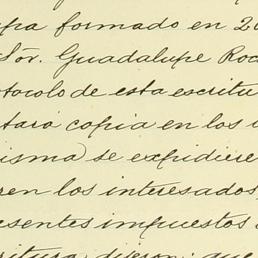 pra formado en 20
Sór. Guadalupe Roc
otocolo de esta escritu
tará copia en los
isma) se expidiere
ren los interesados,
esentes impuestos
critura, dijeron: que